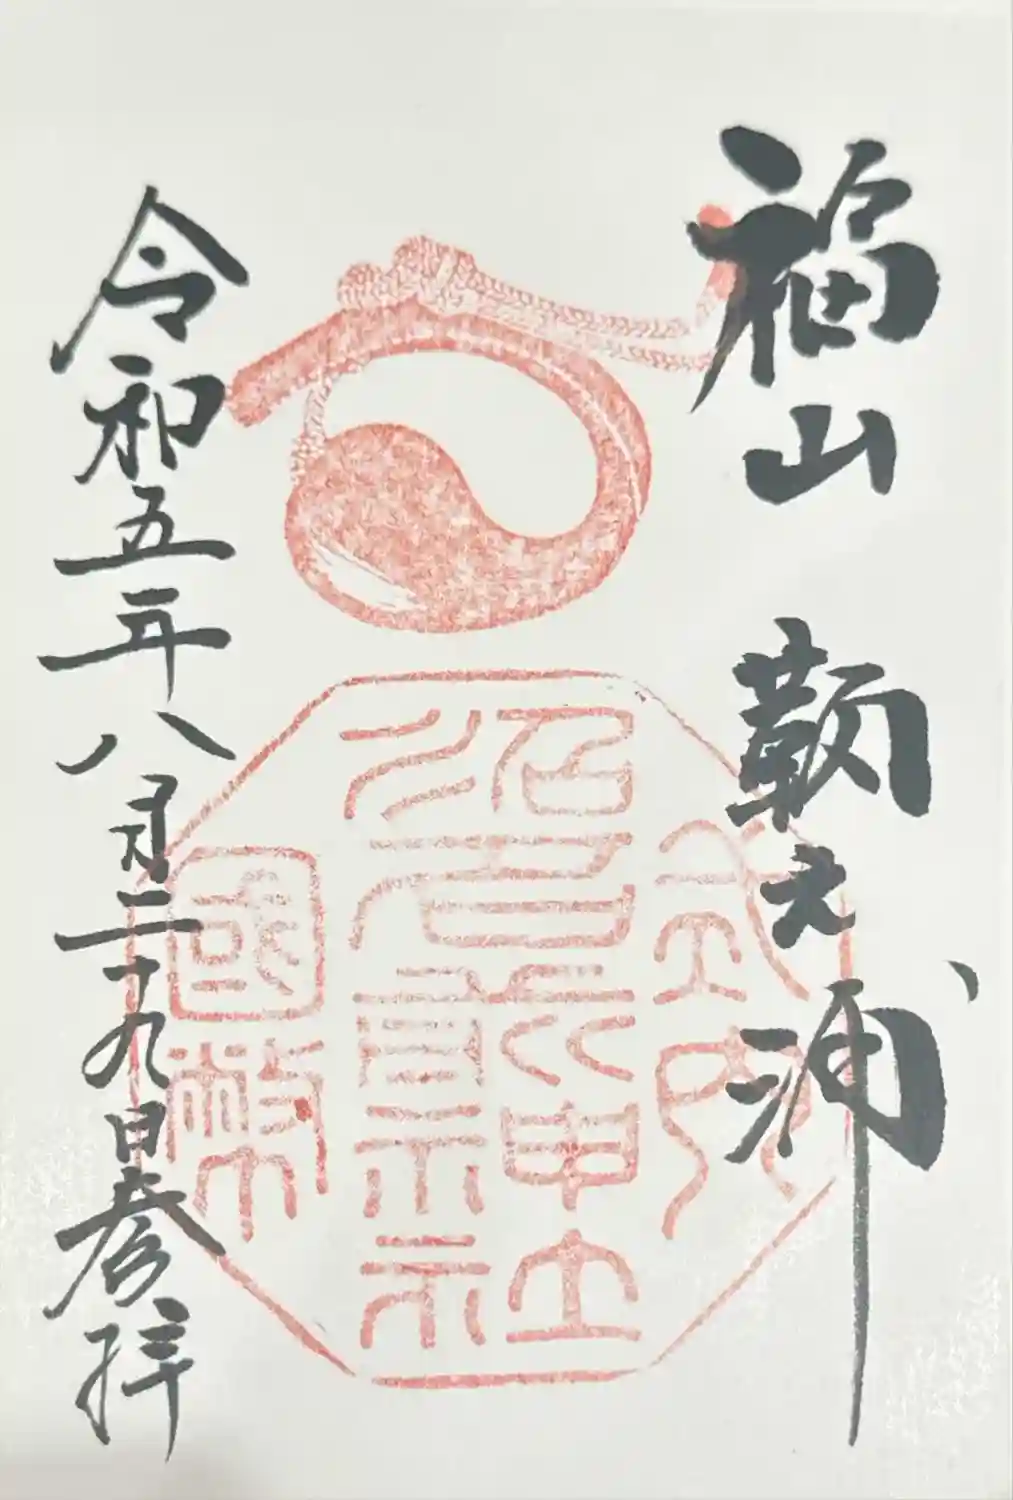 福山 鞆之浦
式内
沼名前神社
國幣
令和五年八月二十九日参拝